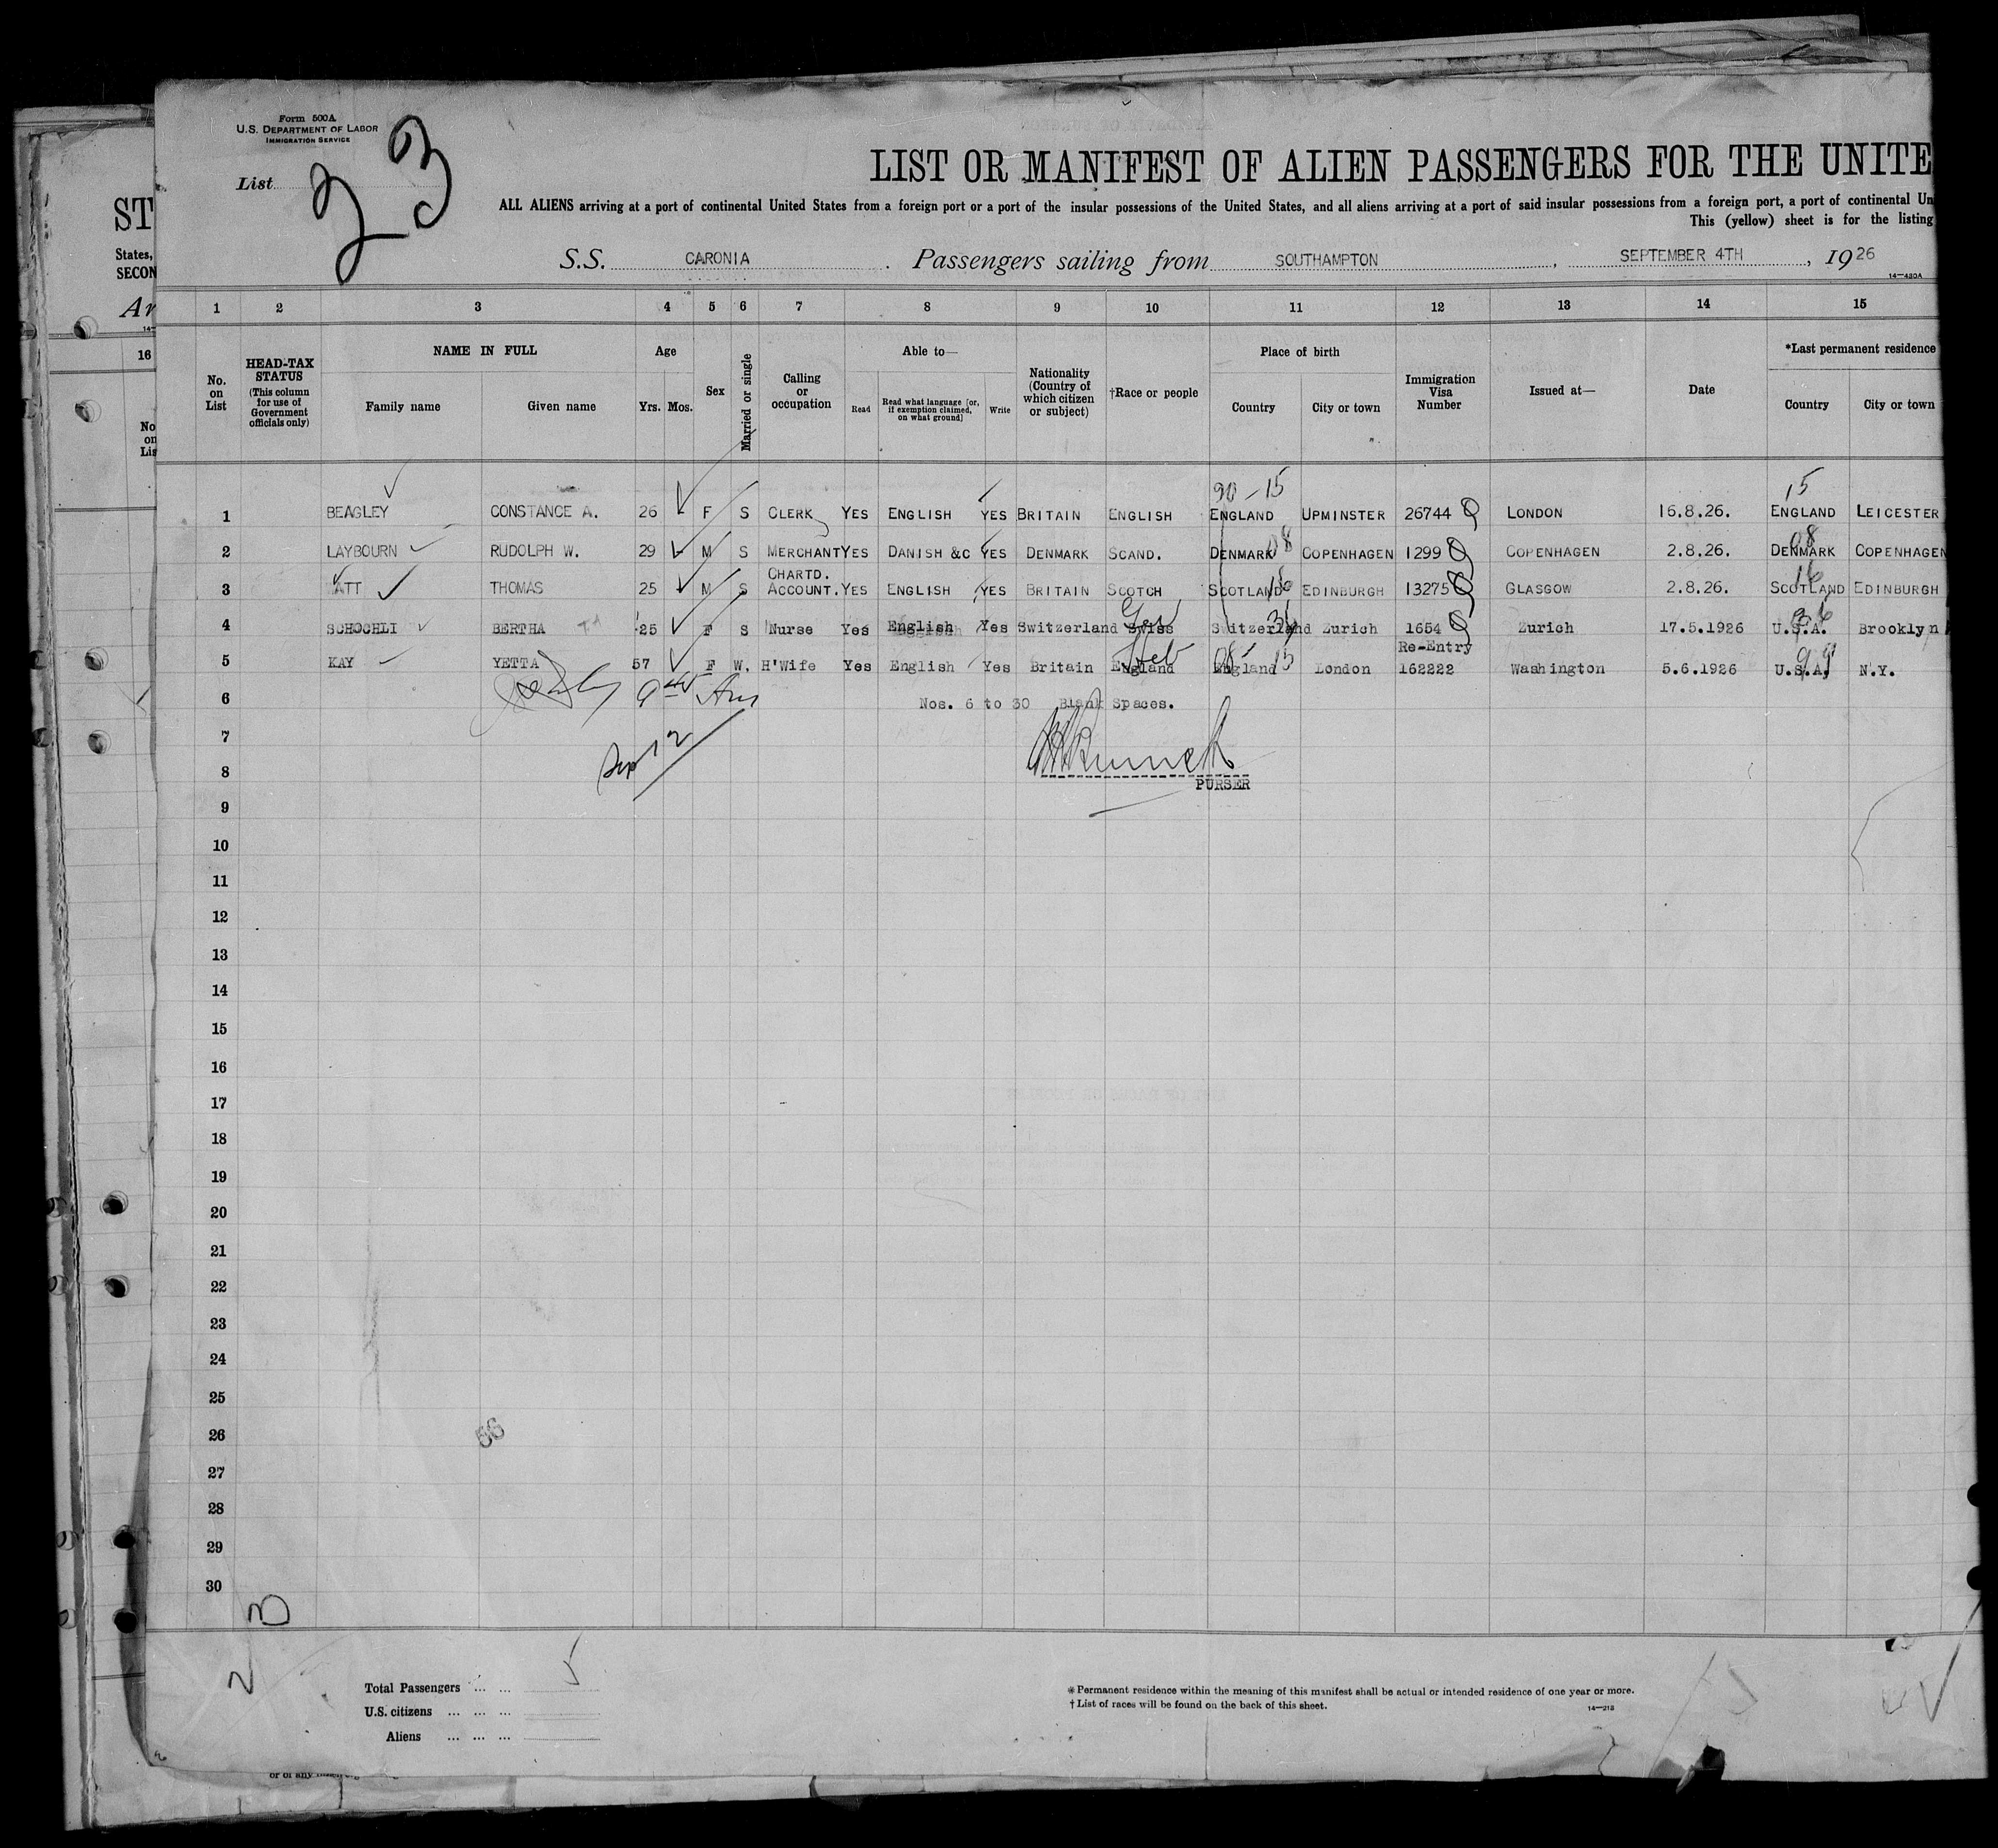 Form 500A
U.S. DEPARTMENT OF LABOR
IMMIGRATION SERVICE
List 23
LIST OR MANIFEST OF ALIEN PASSENGERS FOR THE UNITE
ALL ALIENS arriving at a port of continental United States from a foreign port or a port of the insular possessions of the United States, and all aliens arriving at a port of said insular possessions from a foreign port, a port of continental Un
This (yellow) sheet is for the listing
S.S. CARONIA. Passengers sailing from SOUTHAMPTON, SEPTEMBER 4TH, 1926
14—430A
ST
States,
SECON
Ar
14—
16
No
on
Lis
1 2 3 4 5 6 7 8 9 10 11 12 13 14 15
No. on List
HEAD-TAX STATUS (This column for use of Government officials only)
NAME IN FULL
Family name Given name
Age
Yrs. Mos.
Sex
Married or single
Calling or occupation
Able to—
Read
Read what language [or, if exemption claimed, on what ground]
Write
Nationality (Country of which citizen or subject)
†Race or people
Place of birth
Country City or town
Immigration Visa Number
Issued at—
Date
*Last permanent residence
Country City or town
90 - 15 15
1 BEAGLEY CONSTANCE A. 26 F S CLERK YES ENGLISH YES BRITAIN ENGLISH ENGLAND UPMINSTER 26744 LONDON 16.8.26. ENGLAND LEICESTER
08 08
2 LAYBOURN RUDOLPH W. 29 M S MERCHANT YES DANISH &C YES DENMARK SCAND. DENMARK COPENHAGEN 1299 COPENHAGEN 2.8.26. DENMARK COPENHAGEN
16
3 ATT THOMAS 25 M S CHARTD. ACCOUNT. YES ENGLISH YES BRITAIN SCOTCH SCOTLAND EDINBURGH 13275 GLASGOW 2.8.26. SCOTLAND EDINBURGH
Ger
4 SCHOCHLI BERTHA 25 F S Nurse Yes English Yes Switzerland Swiss Switzerland Zurich 1654 Zurich 17.5.1926 U.S.A. Brooklyn
Heb 15 99
5 KAY YETTA 57 F W. H'Wife Yes English Yes Britain England England London Re-Entry 162222 Washington 5.6.1926 U.S.A. N.Y.
6 Nos. 6 to 30 Blank Spaces.
7
8
PURSER
9
10
11
12
13
14
15
16
17
18
19
20
21
22
23
24
25
26
56
27
28
29
30
Total Passengers ... ... 5
U.S. citizens ... ... ...
Aliens ... ... ...
* Permanent residence within the meaning of this manifest shall be actual or intended residence of one year or more.
† List of races will be found on the back of this sheet.
14—213